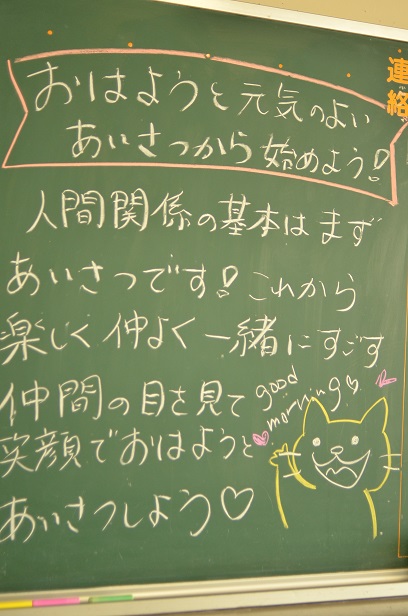 連絡
おはようと元気のよい
あいさつから始めよう!
人間関係の基本はまず
あいさつです!これから
楽しく仲よく一緒にすごす
仲間の目を見て
笑顔でおはようと
あいさつしよう♡
good
morning♡